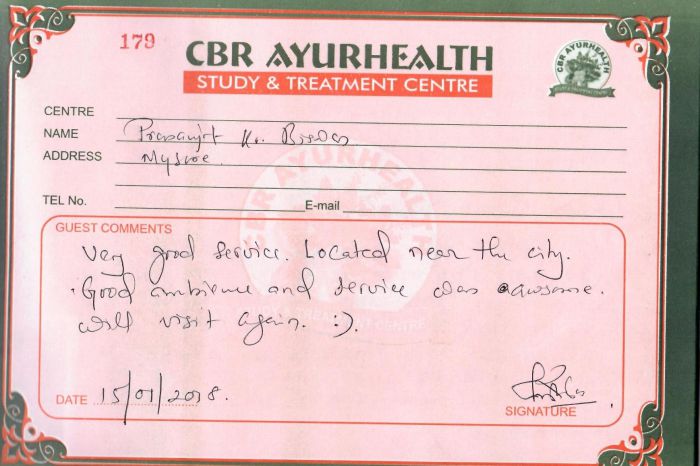 179
CBR AYURHEALTH
STUDY & TREATMENT CENTRE
CBR AYURHEALTH
CENTRE
NAME Prasanjit Kr. Biswas
ADDRESS Mysore.
TEL No. E-mail
CBR AYURHEALTH
GUEST COMMENTS
Very good service. Located near the city.
Good ambience and service was awsome.
will visit again. :).
DATE 15/01/2018.
SIGNATURE